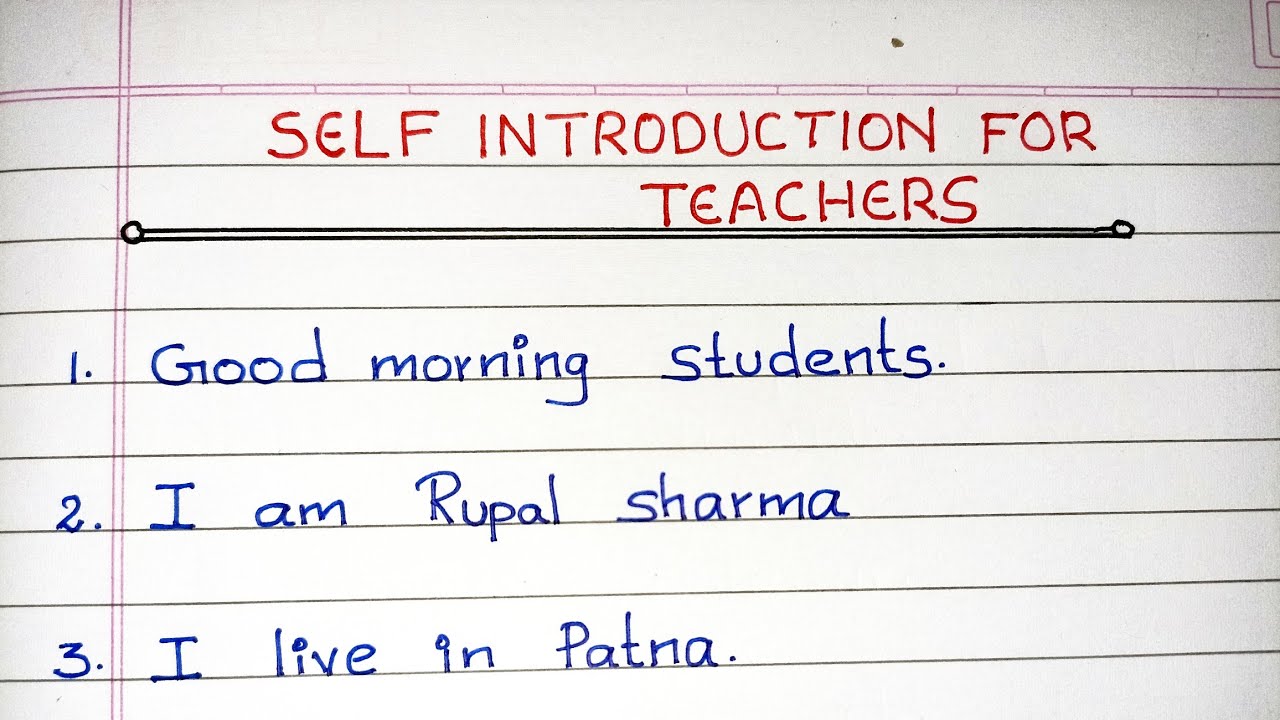 SELF INTRODUCTION FOR
TEACHERS
1. Good morning students.
2. I am Rupal sharma
3. I live in Patna.